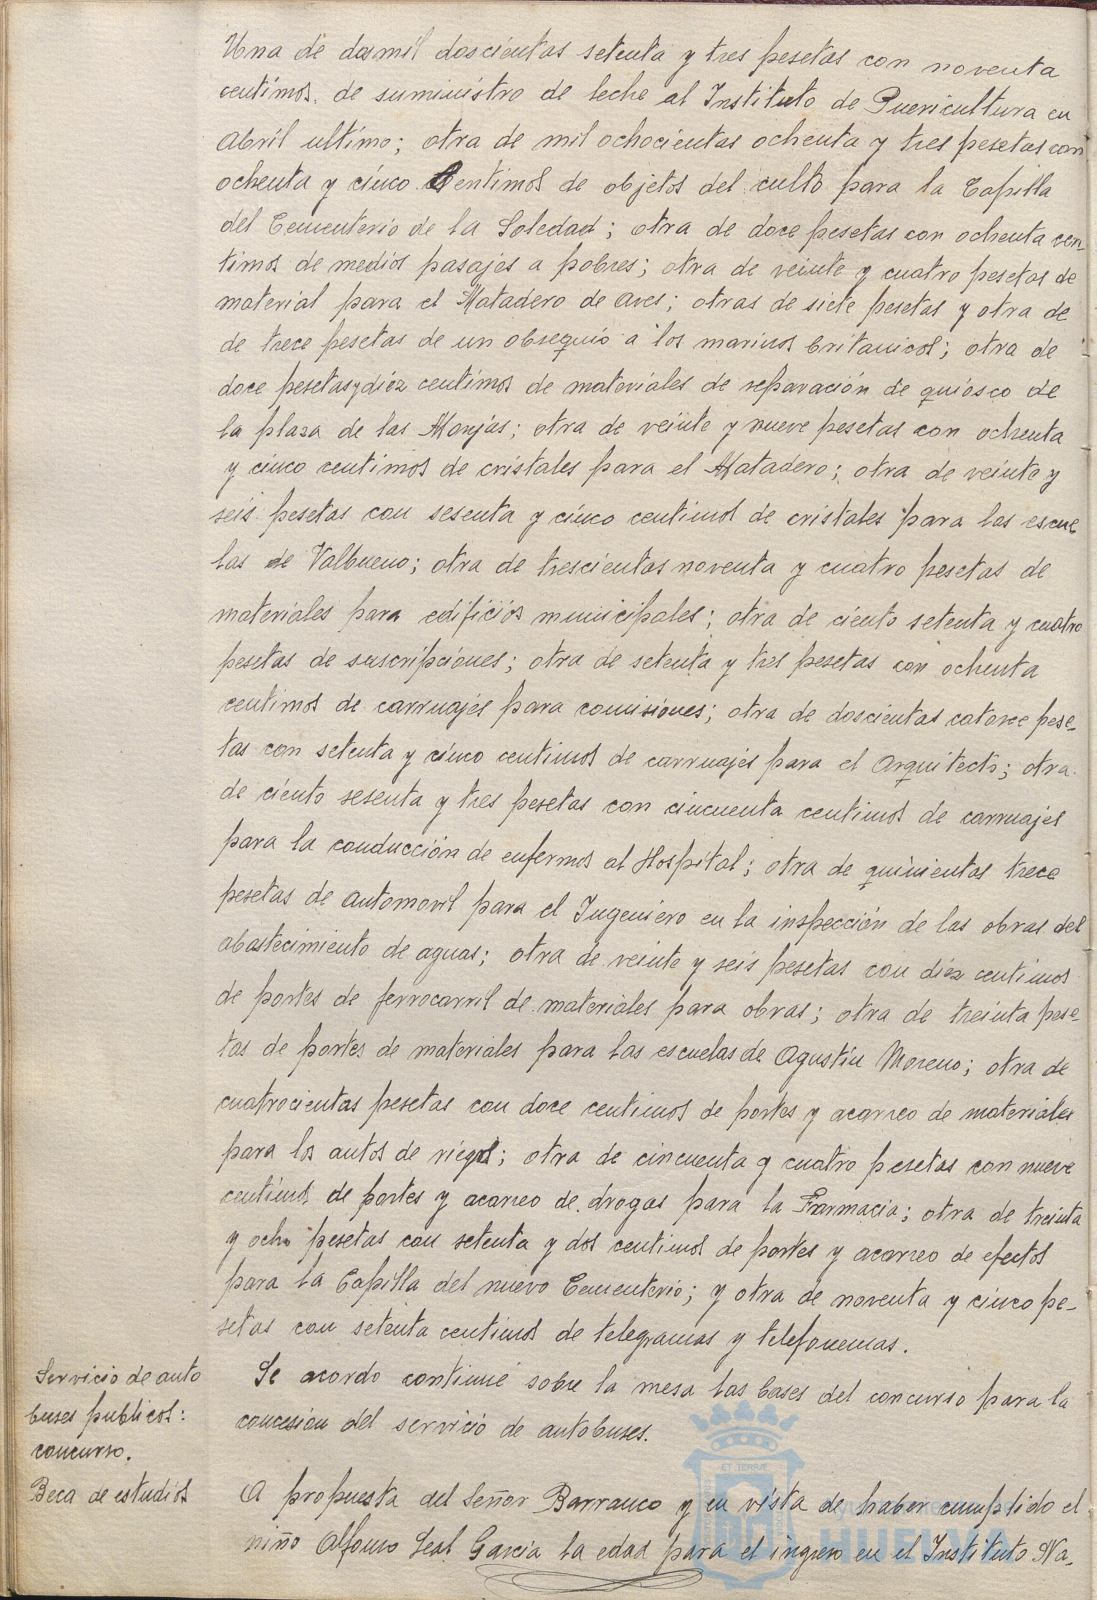 Una de dosmil doscientas setenta y tres pesetas con noventa
centimos. de suministro de leche al Instituto de Puericultura en
Abril ultimo; otra de mil ochocientas ochenta y tres pesetas con
ochenta y cinco Centimos de objetos del culto para la Capilla
del Cementerio de la Soledad; otra de doce pesetas con ochenta cen-
timos de medios pasajes a pobres; otra de veinte y cuatro pesetas de
material para el Matadero de Aves; otras de siete pesetas y otra de
de trece pesetas de un obsequio a los marinos britanicos; otra de
doce pesetas y diez centimos de materiales de reparación de quiosco de
la plaza de las Monjas; otra de veinte y nueve pesetas con ochenta
y cinco centimos de cristales para el Matadero; otra de veinte y
seis pesetas con sesenta y cinco centimos de cristales para las escue
las de Valbueno; otra de trescientas noventa y cuatro pesetas de
materiales para edificios municipales; otra de ciento setenta y cuatro
pesetas de suscripciones; otra de setenta y tres pesetas con ochenta
centimos de carruajes para comisiones; otra de doscientas catorce pese-
tas con setenta y cinco centimos de carruajes para el Arquitecto; otra
de ciento sesenta y tres pesetas con cincuenta centimos de carruajes
para la conducción de enfermos al Hospital; otra de quinientas trece
pesetas de automovil para el Ingeniero en la inspección de las obras del
abastecimiento de aguas; otra de veinte y seis pesetas con diez centimos
de portes de ferrocarril de materiales para obras; otra de treinta pese-
tas de portes de materiales para las escuelas de Agustín Moreno; otra de
cuatrocientas pesetas con doce centimos de portes y acarreo de materiales
para los autos de riego; otra de cincuenta y cuatro pesetas con nueve
centimos de portes y acarreo de drogas para la Farmacia; otra de treinta
y ocho pesetas con setenta y dos centimos de portes y acarreo de efectos
para la Capilla del nuevo Cementerio; y otra de noventa y cinco pe-
setas con setenta centimos de telegramas y telefonemas.
Servicio de auto
buses publicos:
concurso.
Se acordo continué sobre la mesa las bases del concurso para la
concesion del servicio de autobuses.
Beca de estudios
A propuesta del Señor Barranco y en vista de haber cumplido el
niño Alfonso Leal Garcia la edad para el ingreso en el Instituto Na-
ET TERRÆ
HUELVA